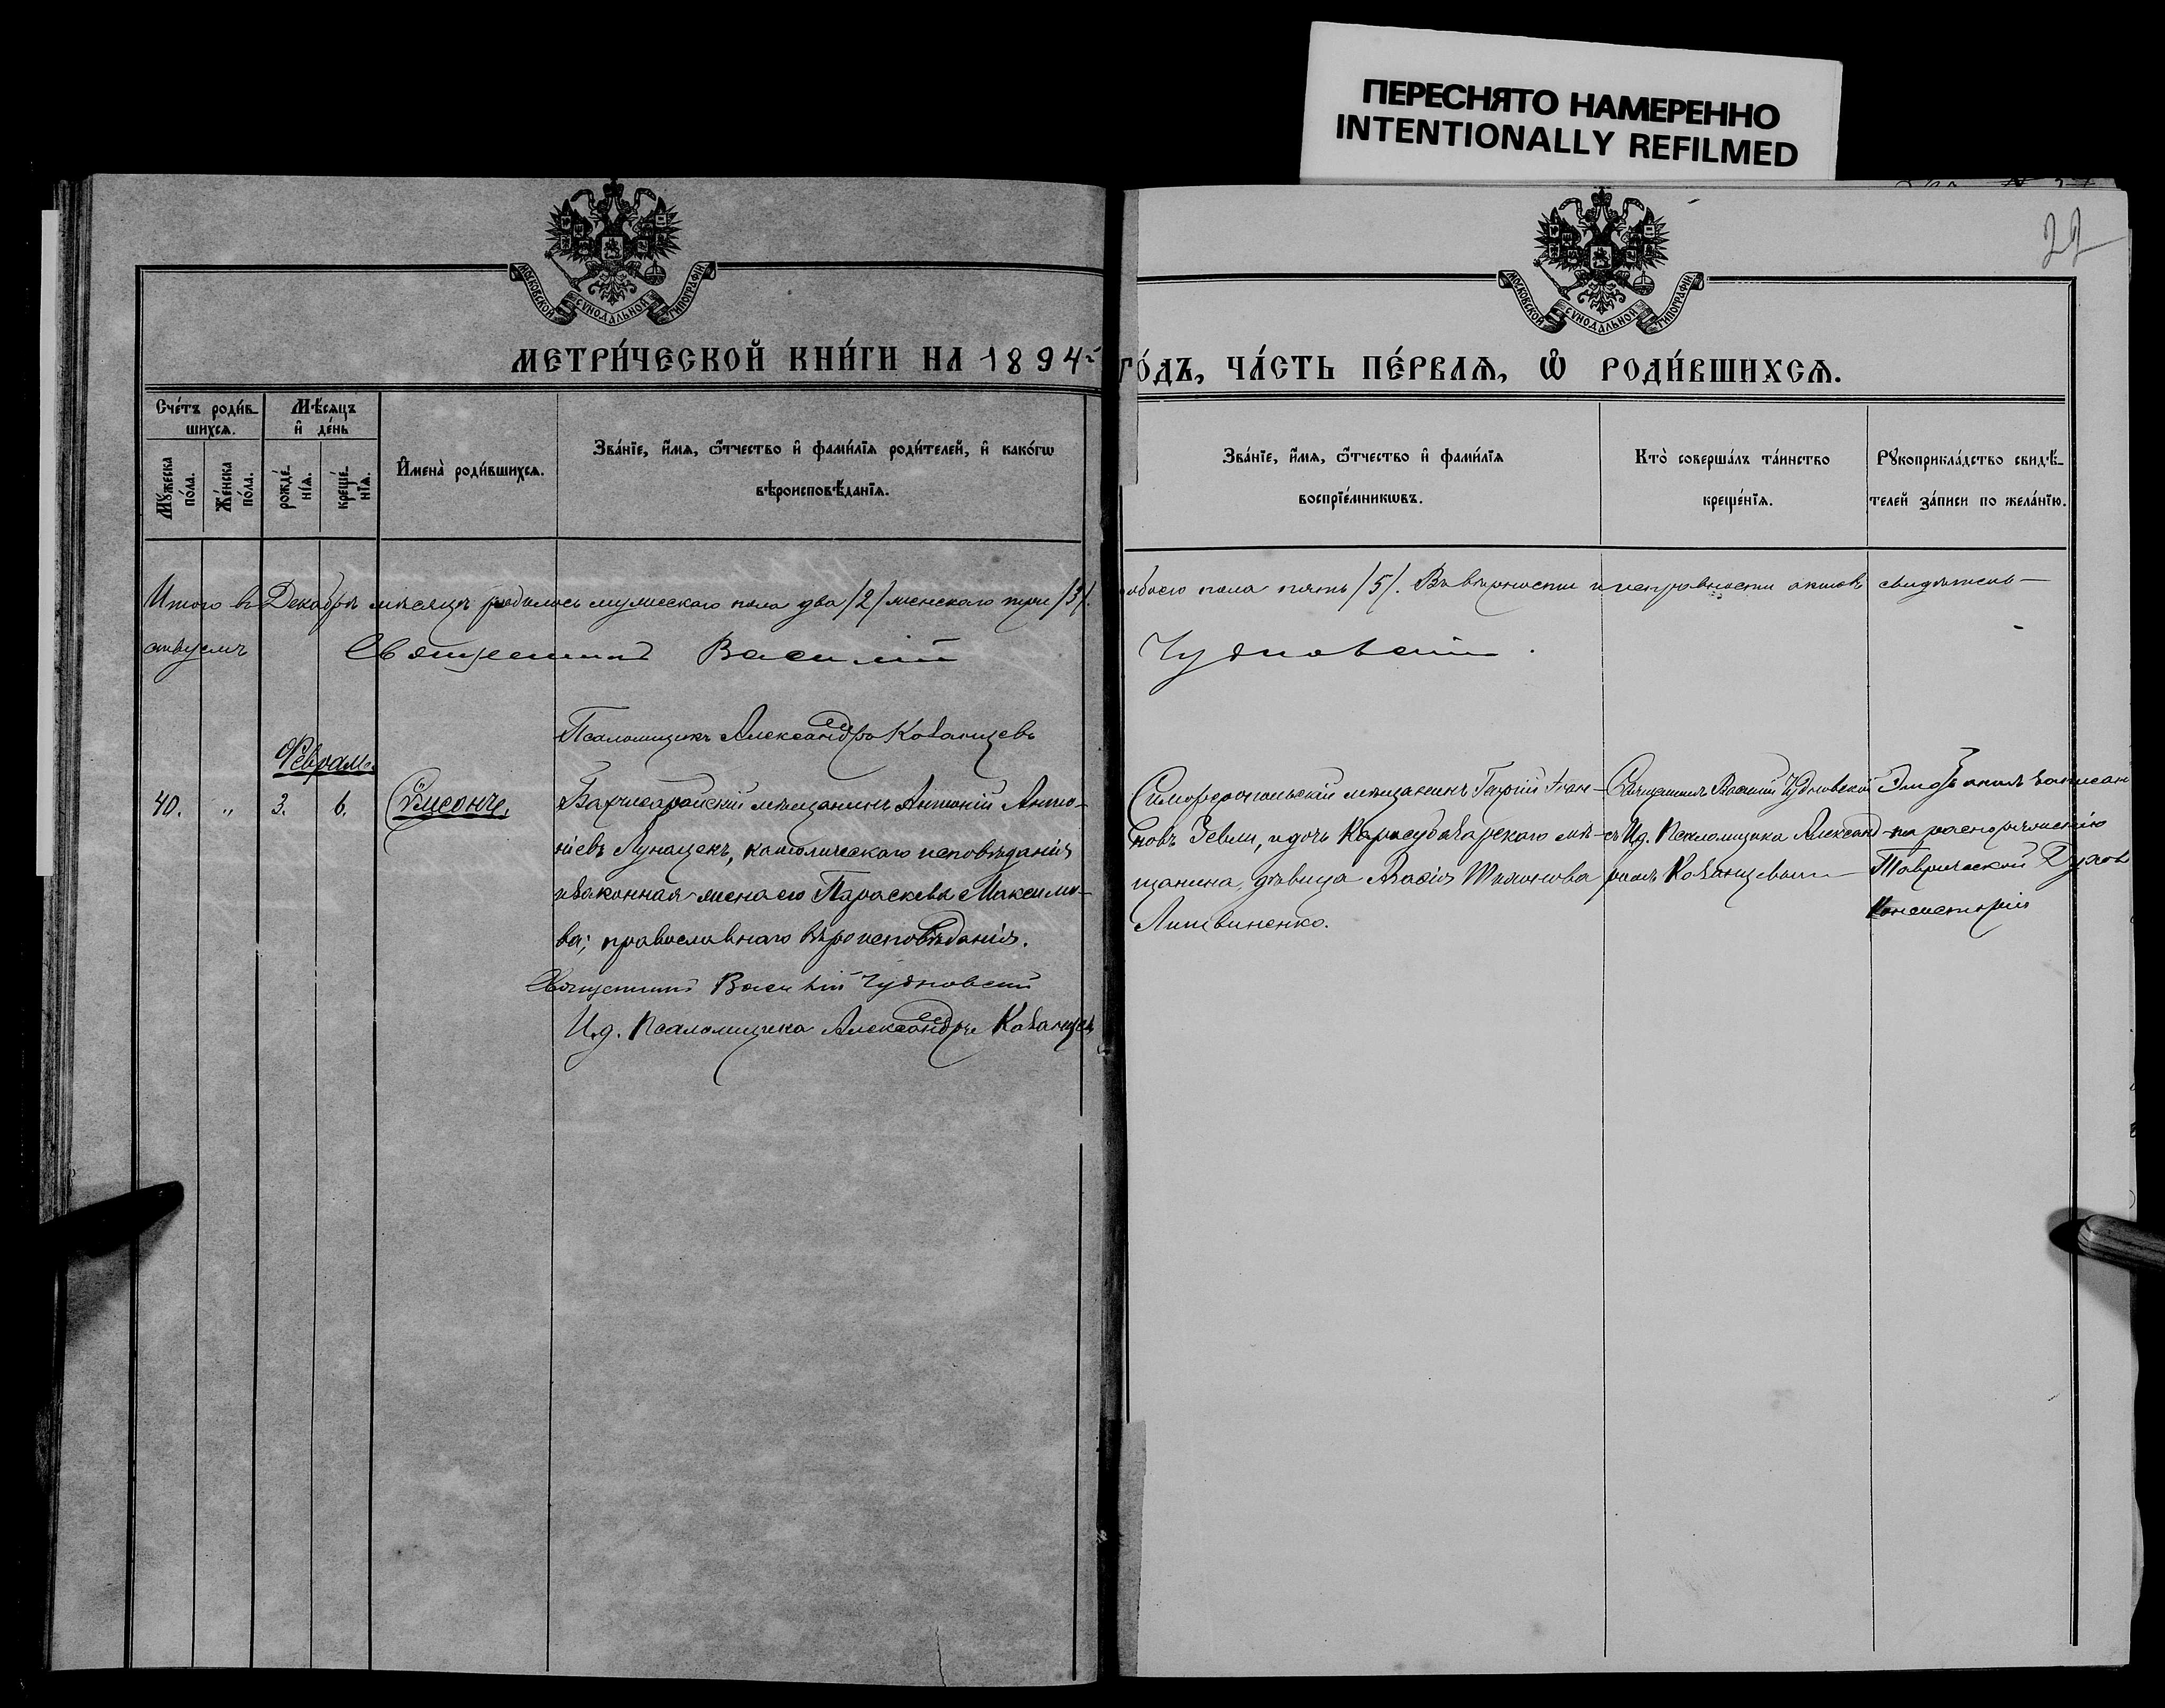 ПЕРЕСНЯТО НАМЕРЕННО
INTENTIONALLY REFILMED
22
МОСКОВСКОЙ СѴНОДАЛЬНОЙ ТИПОГРАФІИ
МОСКОВСКОЙ СѴНОДАЛЬНОЙ ТИПОГРАФІИ
МЕТРИ́ЧЕСКОЙ КНИ́ГИ НА 1894 ГО́ДЪ, ЧА́СТЬ ПЕ́РВАѦ, Ѡ҆ РОДИ́ВШИХСѦ.
Сче́тъ роди́в-
шихсѧ.
Мѣ́сѧцъ
и҆ де́нь
Мꙋ́жеска
по́ла.
Же́нска
по́ла.
рожде́-
нїѧ.
креще́-
нїѧ.
И҆мена̀ роди́вшихсѧ.
Зва́нїе, и҆́мѧ, ѻ҆́тчество и҆ фами́лїѧ роди́телей, и҆ како́гѡ
вѣроисповѣ́данїѧ.
Зва́нїе, и҆́мѧ, ѻ҆́тчество и҆ фами́лїѧ
воспрїе́мникѡвъ.
Кто̀ соверша́лъ та́инство
креще́нїѧ.
Рꙋкоприкла́дство свидѣ́-
телей за́писи по жела́нїю.
Итого въ Декабрѣ мѣсяцѣ родилось мужескаго пола два /2/ женскаго три /3/. обоего пола пять /5/. Въ вѣрности и исправности актовъ свидѣтель-
ствуемъ Священникъ Василій Чудновскій.
Псаломщикъ Александръ Казанцевъ
Февраля.
40. " 3. 6.
Бахчисарайскій мѣщанинъ Антоній Анто-
ніевъ Лунацекъ, католическаго исповѣданія
и законная жена его Параскева Максимо-
ва; православнаго вѣроисповѣданія.
Священникъ Василій Чудновскій
И.д. Псаломщика Александръ Казанцевъ
Симферопольскій мѣщанинъ
новъ и дочь Карасубазарскаго мѣ-
щанина, дѣвица
Литвиненко.
Священникъ Василій Чудновскій
съ И.д. Псаломщика Александ-
ромъ Казанцевымъ
Этотъ актъ записан
по распоряженію
Таврической Духов
Консисторіи